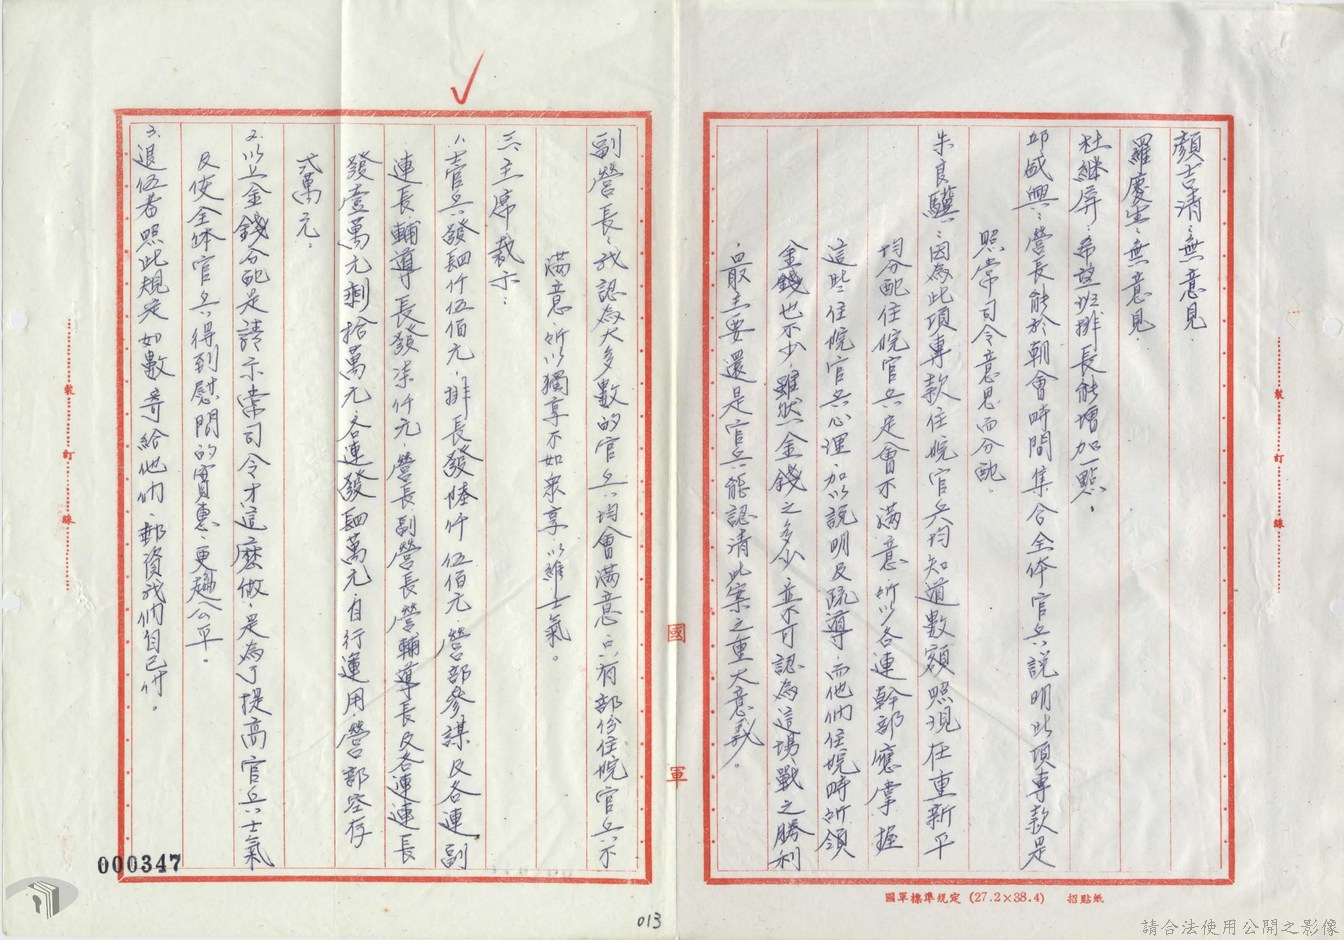 顏吉清：無意見。
羅慶生：無意見。
杜繼屏：希望班排長能增加一點。
邱盛興：營長能於朝會時間集合全体官兵說明此項專款是
照常司令意思而分配。
朱良驥：因為此項專款住院官兵均知道數額照現在重新平
均分配住院官兵定會不滿意所以各連幹部應掌握
這些住院官兵心理加以說明及疏導而他們住院時所領
金錢也不少，雖然金錢之多少並不可認為這場戰之勝利
最主要還是官兵能認清此案之重大意義。
副營長：我認為大多數的官兵均會滿意，只有部份住院官兵不
滿意所以獨享不如眾享以維士氣。
三、主席裁示：
1、士官兵發四仟伍佰元，排長發陸仟伍佰元，營部參謀及各連副
連長輔導長發柒仟元，營長副營長營輔導長及各連連長
發壹萬元剩拾萬元各連發四萬元自行運用，營部空存
弍萬元。
2、以上金錢分配是請示常司令才這麼做，是為了提高官兵士氣
及使全体官兵得到慰問的實惠，更趨公平。
3、退伍者照此規定如數寄給他們，郵資我們自己付。
裝 訂 線
裝 訂 線
國
軍
國軍標準規定 (27.2×38.4) 招貼紙
000347
013
請合法使用公開之影像